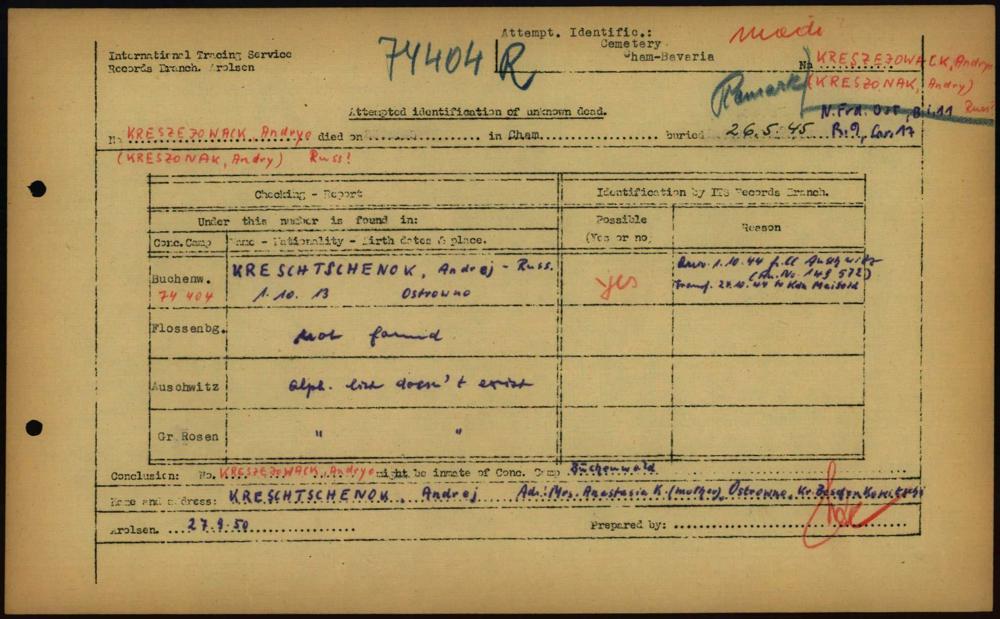 Attempt. Identific.:
Cemetery
Cham-Bavaria
International Tracing Service
Records Branch. Arolsen
74404/R
Remark
No KRESZEZOWACK, Andryo
(KRESZONAK, Andry)
Russ!
N. Frd. Ost, B.I.11
R.9, Gr. 17
Attempted identification of unknown dead.
No KRESZEZOWACK, Andryo died on in Cham buried 26.5.45
(KRESZONAK, Andry) Russ!
Checking - Report
Identification by ITS Records Branch.
Under this number is found in:
Possible
(Yes or no)
Reason
Conc. Camp
Name - Nationality - Birth dates & place.
Buchenw.
74 404
KRESCHTSCHENOK, Andrej - Russ.
1.10.13 Ostrowno
yes
1.10.44 Auschwitz
149 572)
Transf. to Kdo
Flossenbg.
not found
Auschwitz
alph. list doesn't exist
Gr. Rosen
" "
Conclusion: No. KRESZEZOWACK, Andryo might be inmate of Conc. Camp Buchenwald
Name and address: KRESCHTSCHENOK, Andrej Adr.: Mrs. Anastasia K. (mother) Ostrowno, Kr.
Arolsen. 27.9.50
Prepared by: